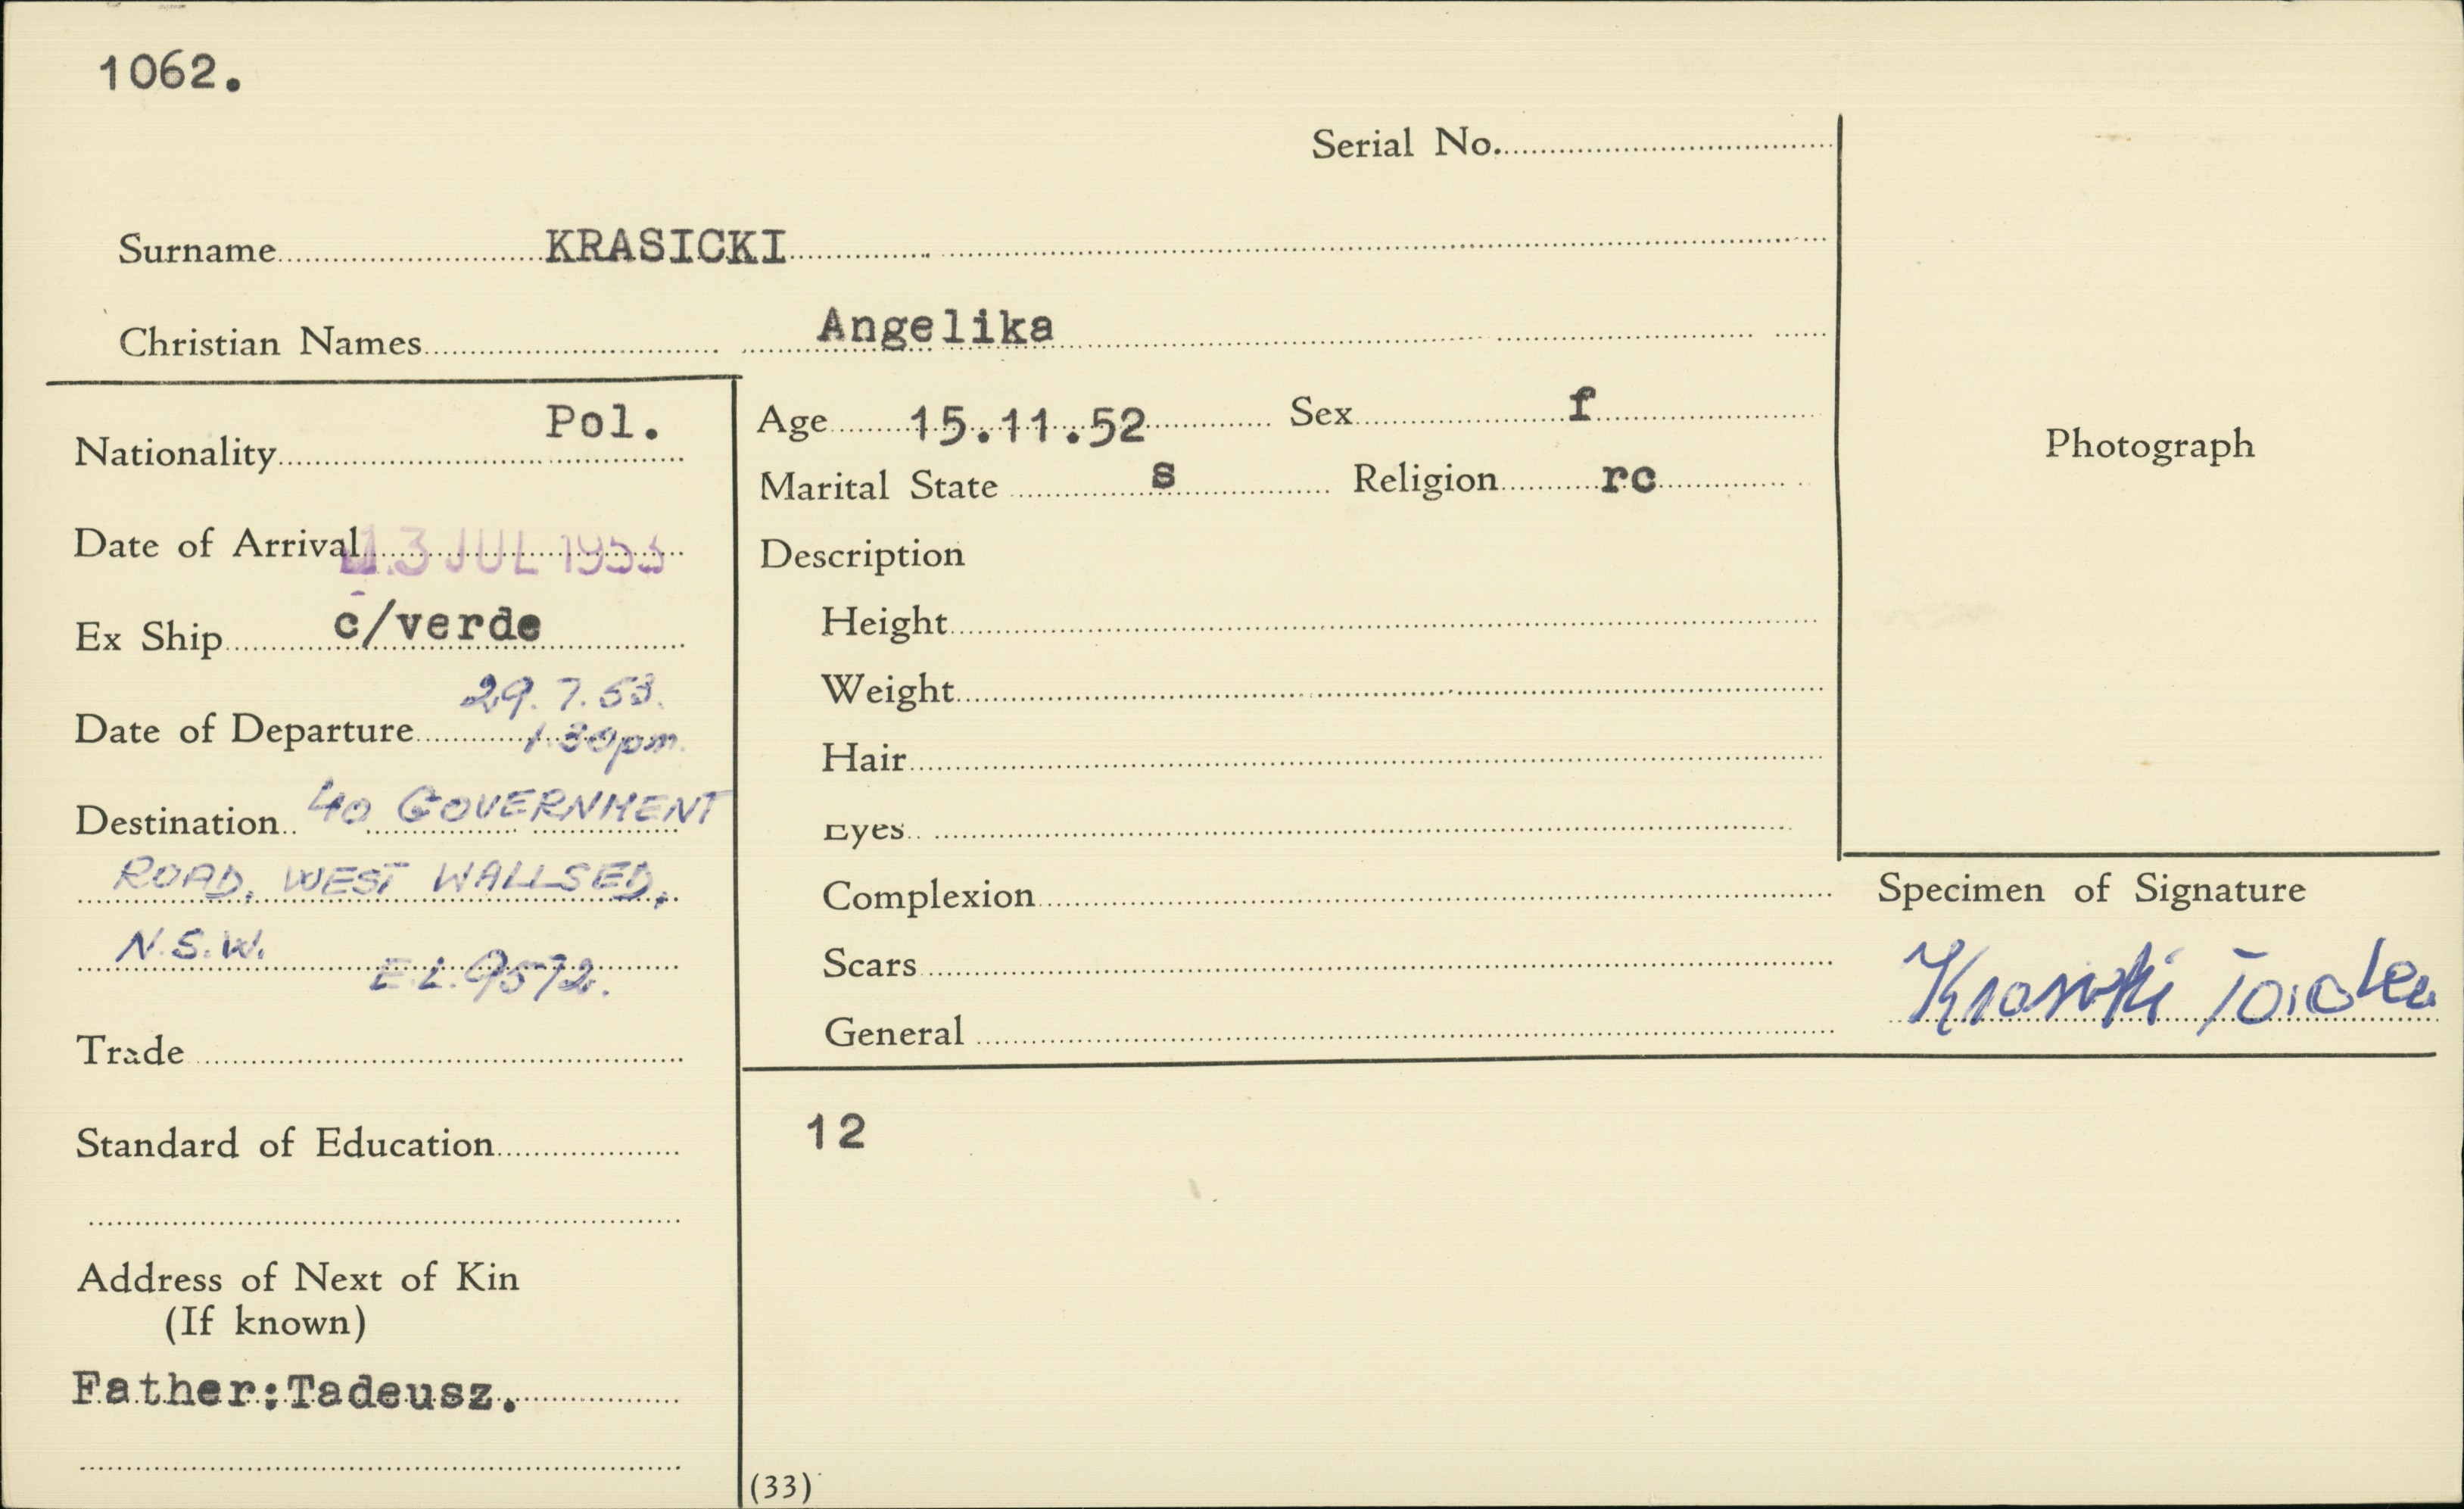 1062.
Serial No.
Surname KRASICKI
Christian Names Angelika
Nationality Pol.
Date of Arrival 13 JUL 1953
Ex Ship c/verde
Date of Departure 29.7.53.
1.30pm.
Destination 40 GOVERNMENT
ROAD, WEST WALLSED,
N.S.W.
E.L.9572.
Trade
Standard of Education
Address of Next of Kin
(If known)
Father:Tadeusz.
Age 15.11.52 Sex f
Marital State s Religion rc
Description
Height
Weight
Hair
Eyes
Complexion
Scars
General
12
(33)
Photograph
Specimen of Signature
Krasicki